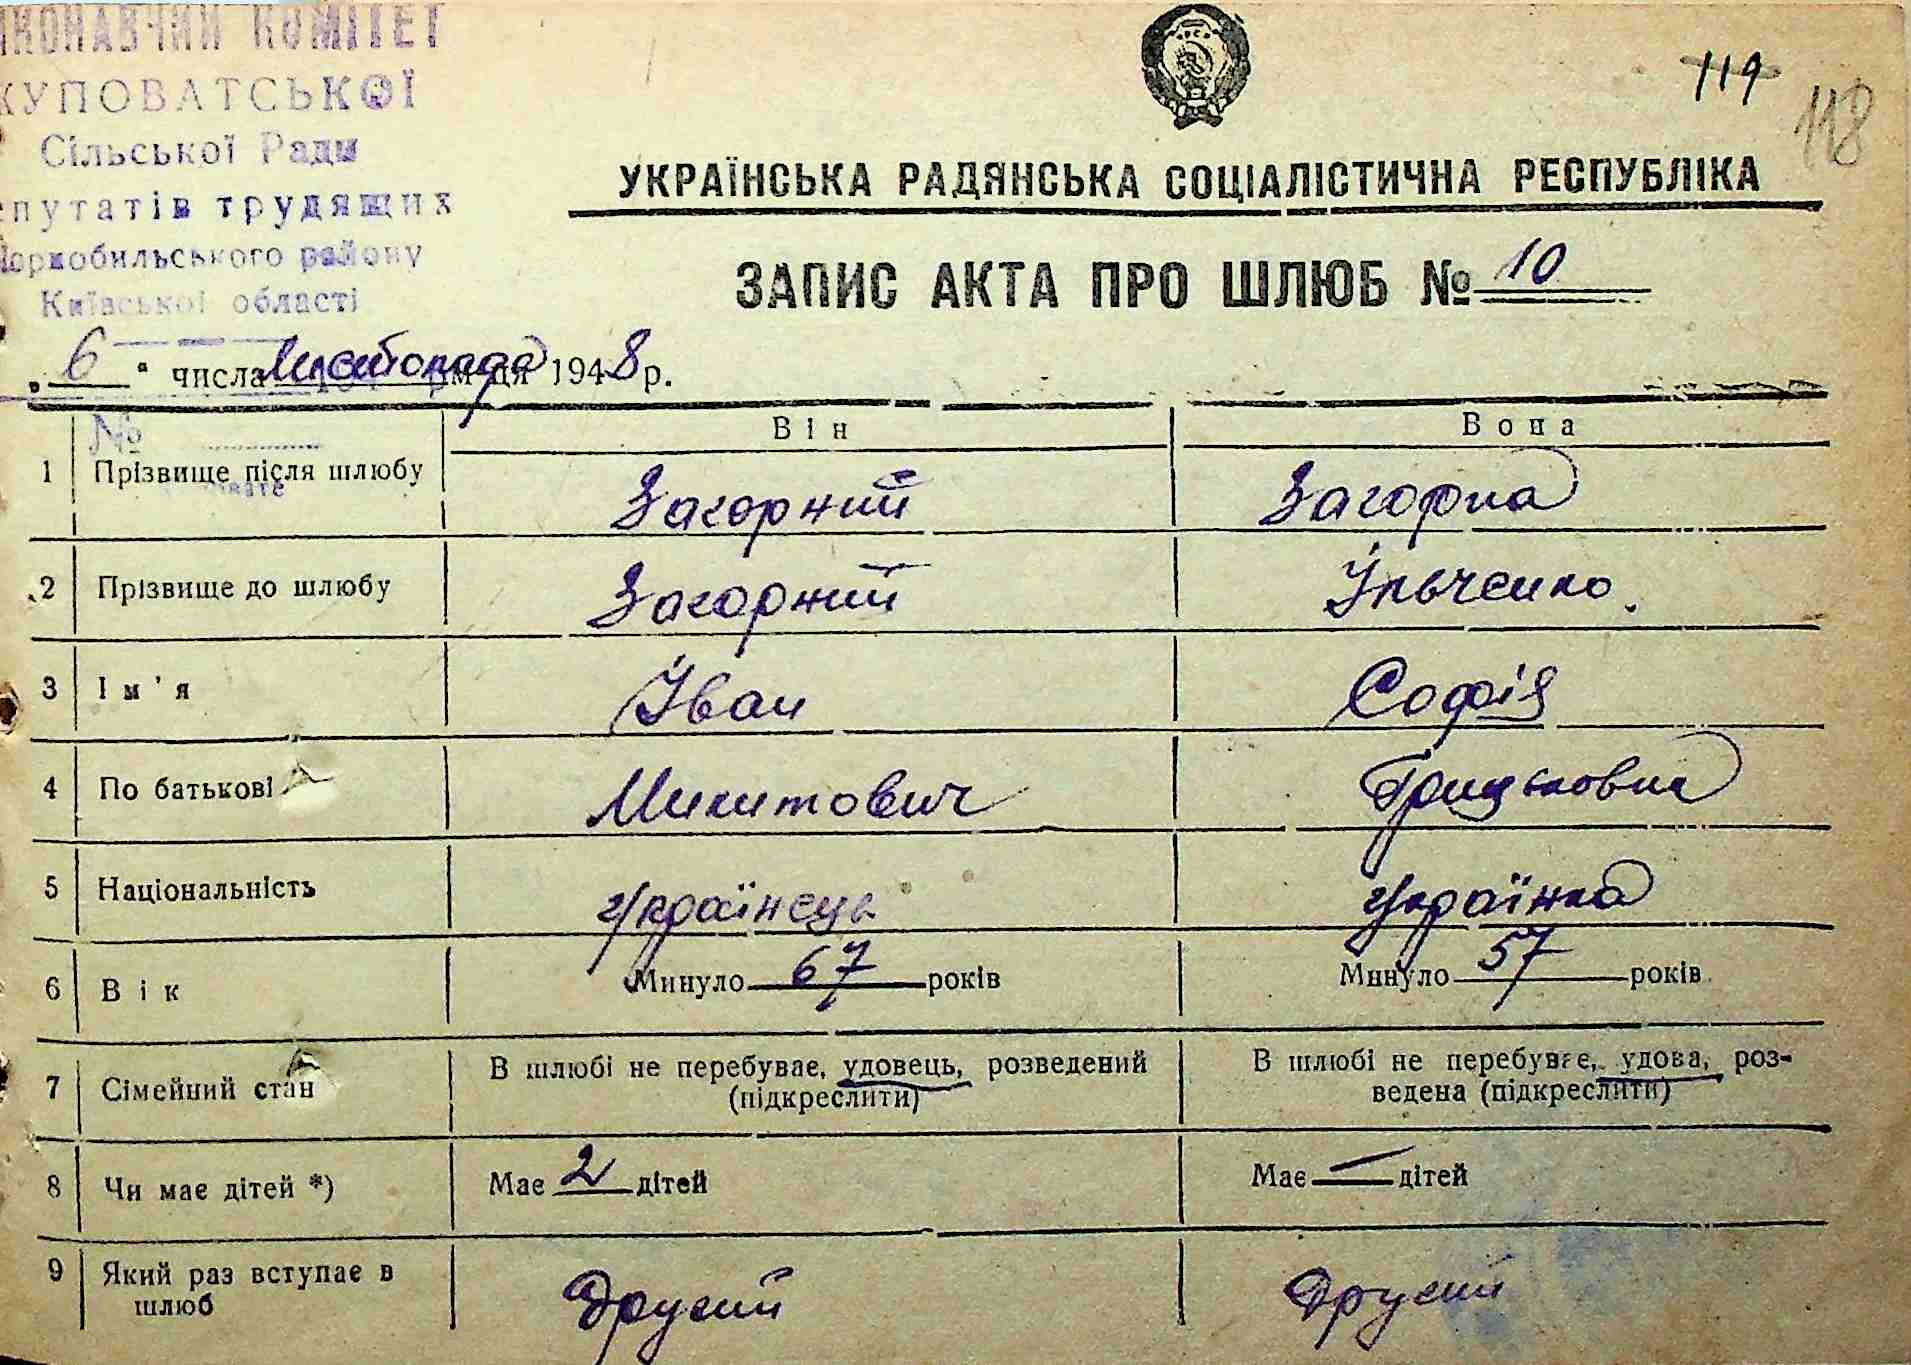 ИКОНАВЧИЙ КОМІТЕТ
КУПОВАТСЬКОЇ
Сільської Ради
епутатів трудящих
Чорнобильського району
Київської області
119
118
УКРАЇНСЬКА РАДЯНСЬКА СОЦІАЛІСТИЧНА РЕСПУБЛІКА
ЗАПИС АКТА ПРО ШЛЮБ № 10
„ 6 “ числа Листопада м-ця 1948 р.
№
Він Вона
1 Прізвище після шлюбу Загорний Загорна
2 Прізвище до шлюбу Загорний Ільченко.
3 Ім'я Іван Софія
4 По батькові Микитович Грицьковна
5 Національність Українець Українка
6 Вік Минуло 67 років Минуло 57 років
7 Сімейний стан В шлюбі не перебуває, удовець, розведений (підкреслити) В шлюбі не перебуває, удова, роз-
ведена (підкреслити)
8 Чи має дітей *) Має 2 дітей Має — дітей
9 Який раз вступає в шлюб Другий Другий